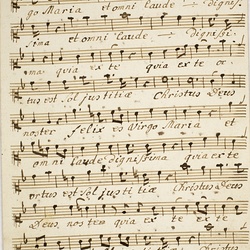 go Maria et omni laude digniss
sima et omni laude dignissi
ma quia ex te quia ex te or
tus est sol justitiæ Christus Deus
noster felix es Virgo Maria et
omni laude dignissima quia ex te
ortus est sol justitiæ Christus
Deus noster quia ex te ex te